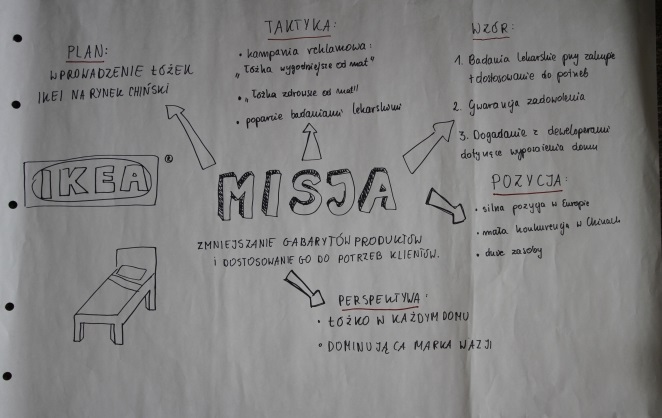 PLAN:
WPROWADZENIE ŁÓŻEK
IKEI NA RYNEK CHIŃSKI
TAKTYKA:
• kampania reklamowa:
"Łóżka wygodniejsze od mat"
• "Łóżka zdrowsze od mat"
• poparcie badaniami lekarskimi
WZÓR:
1. Badania lekarskie przy zakupie
+ dostosowanie do potrzeb
2. Gwarancja zadowolenia
3. Dogadanie z deweloperami
dotyczące wyposażenia domu
IKEA ®
MISJA
ZMNIEJSZANIE GABARYTÓW PRODUKTÓW
I DOSTOSOWANIE GO DO POTRZEB KLIENTÓW.
POZYCJA:
• silna pozycja w Europie
• mała konkurencja w Chinach
• duże zasoby
PERSPEKTYWA:
• ŁÓŻKO W KAŻDYM DOMU
• DOMINUJĄCA MARKA W AZJI